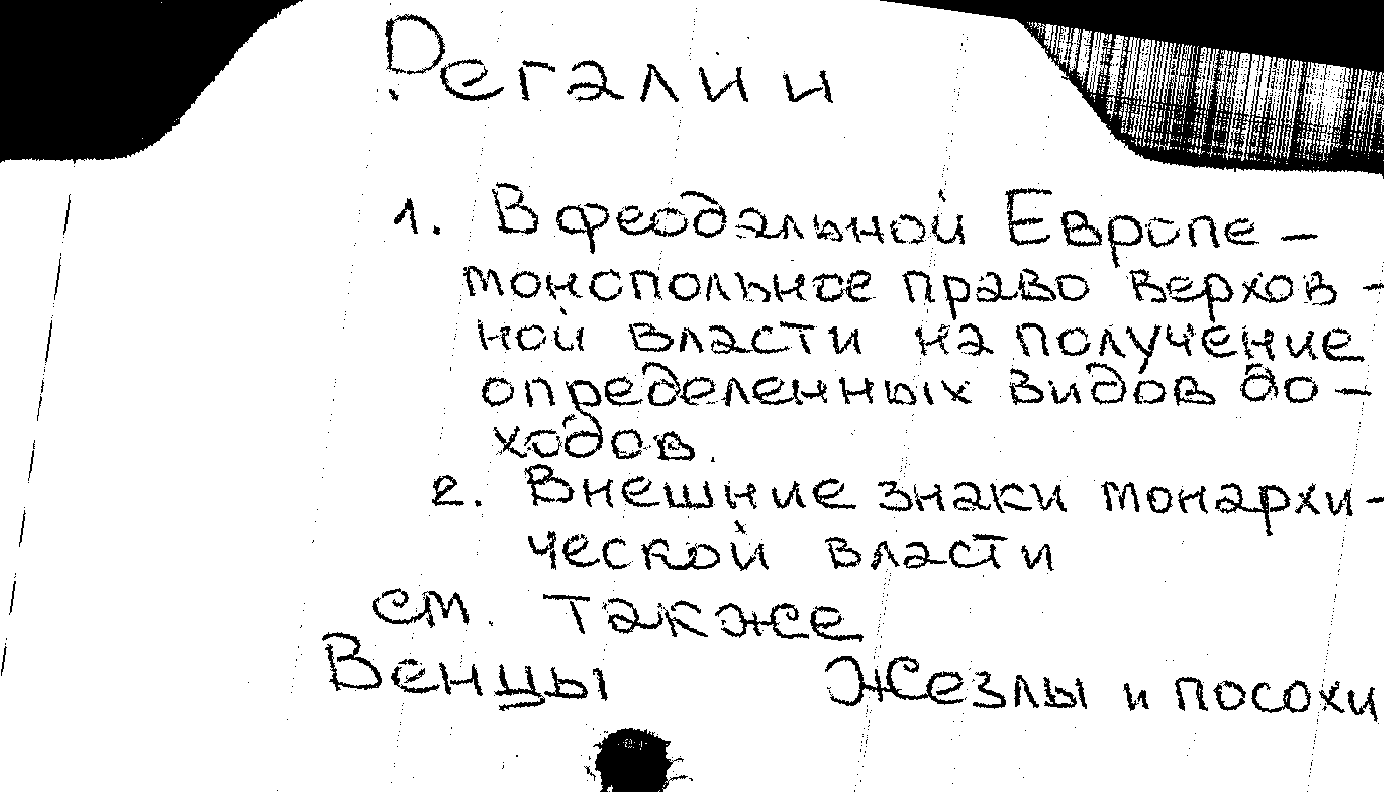 Регалии
1. В феодальной Европе –
монопольное право верхов-
ной власти на получение
определенных видов до-
ходов.
2. Внешние знаки монархи-
ческой власти
см. также
Венцы Жезлы и посохи